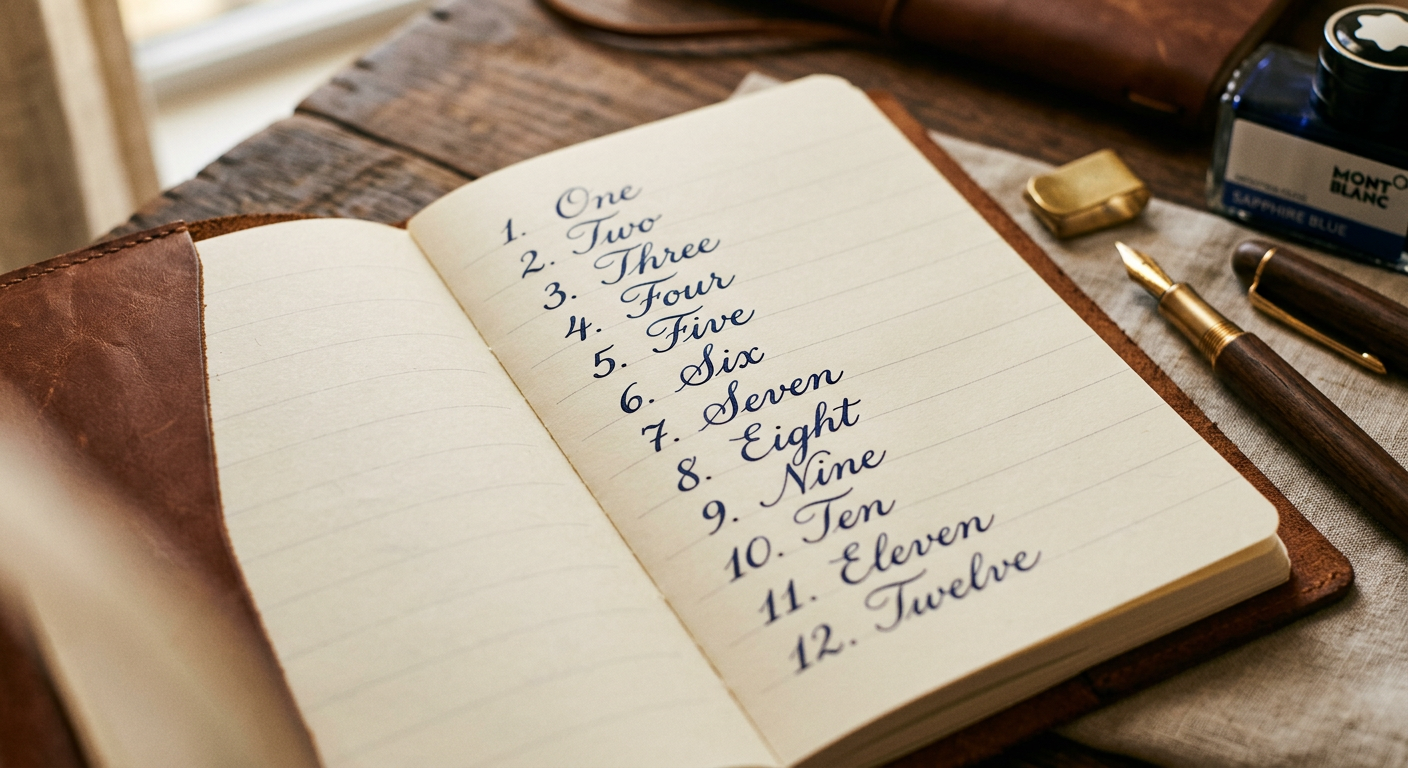 1. One
2. Two
3. Three
4. Four
5. Five
6. Six
7. Seven
8. Eight
9. Nine
10. Ten
11. Eleven
12. Twelve
MONT
BLANC
SAPPHIRE BLUE